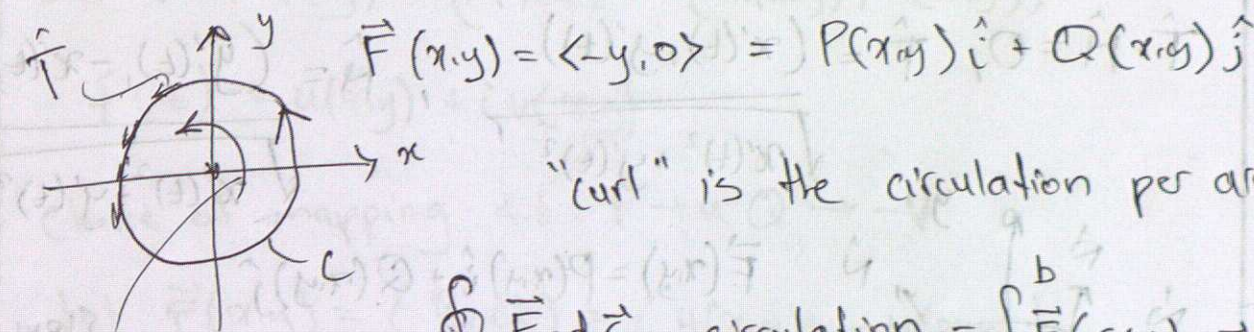 y
T̂
F⃗ (x,y) = <-y,0> = P(x,y) î + Q(x,y) ĵ
x
"curl" is the circulation per
C
∮ F⃗ · circulation = ∫ b F⃗